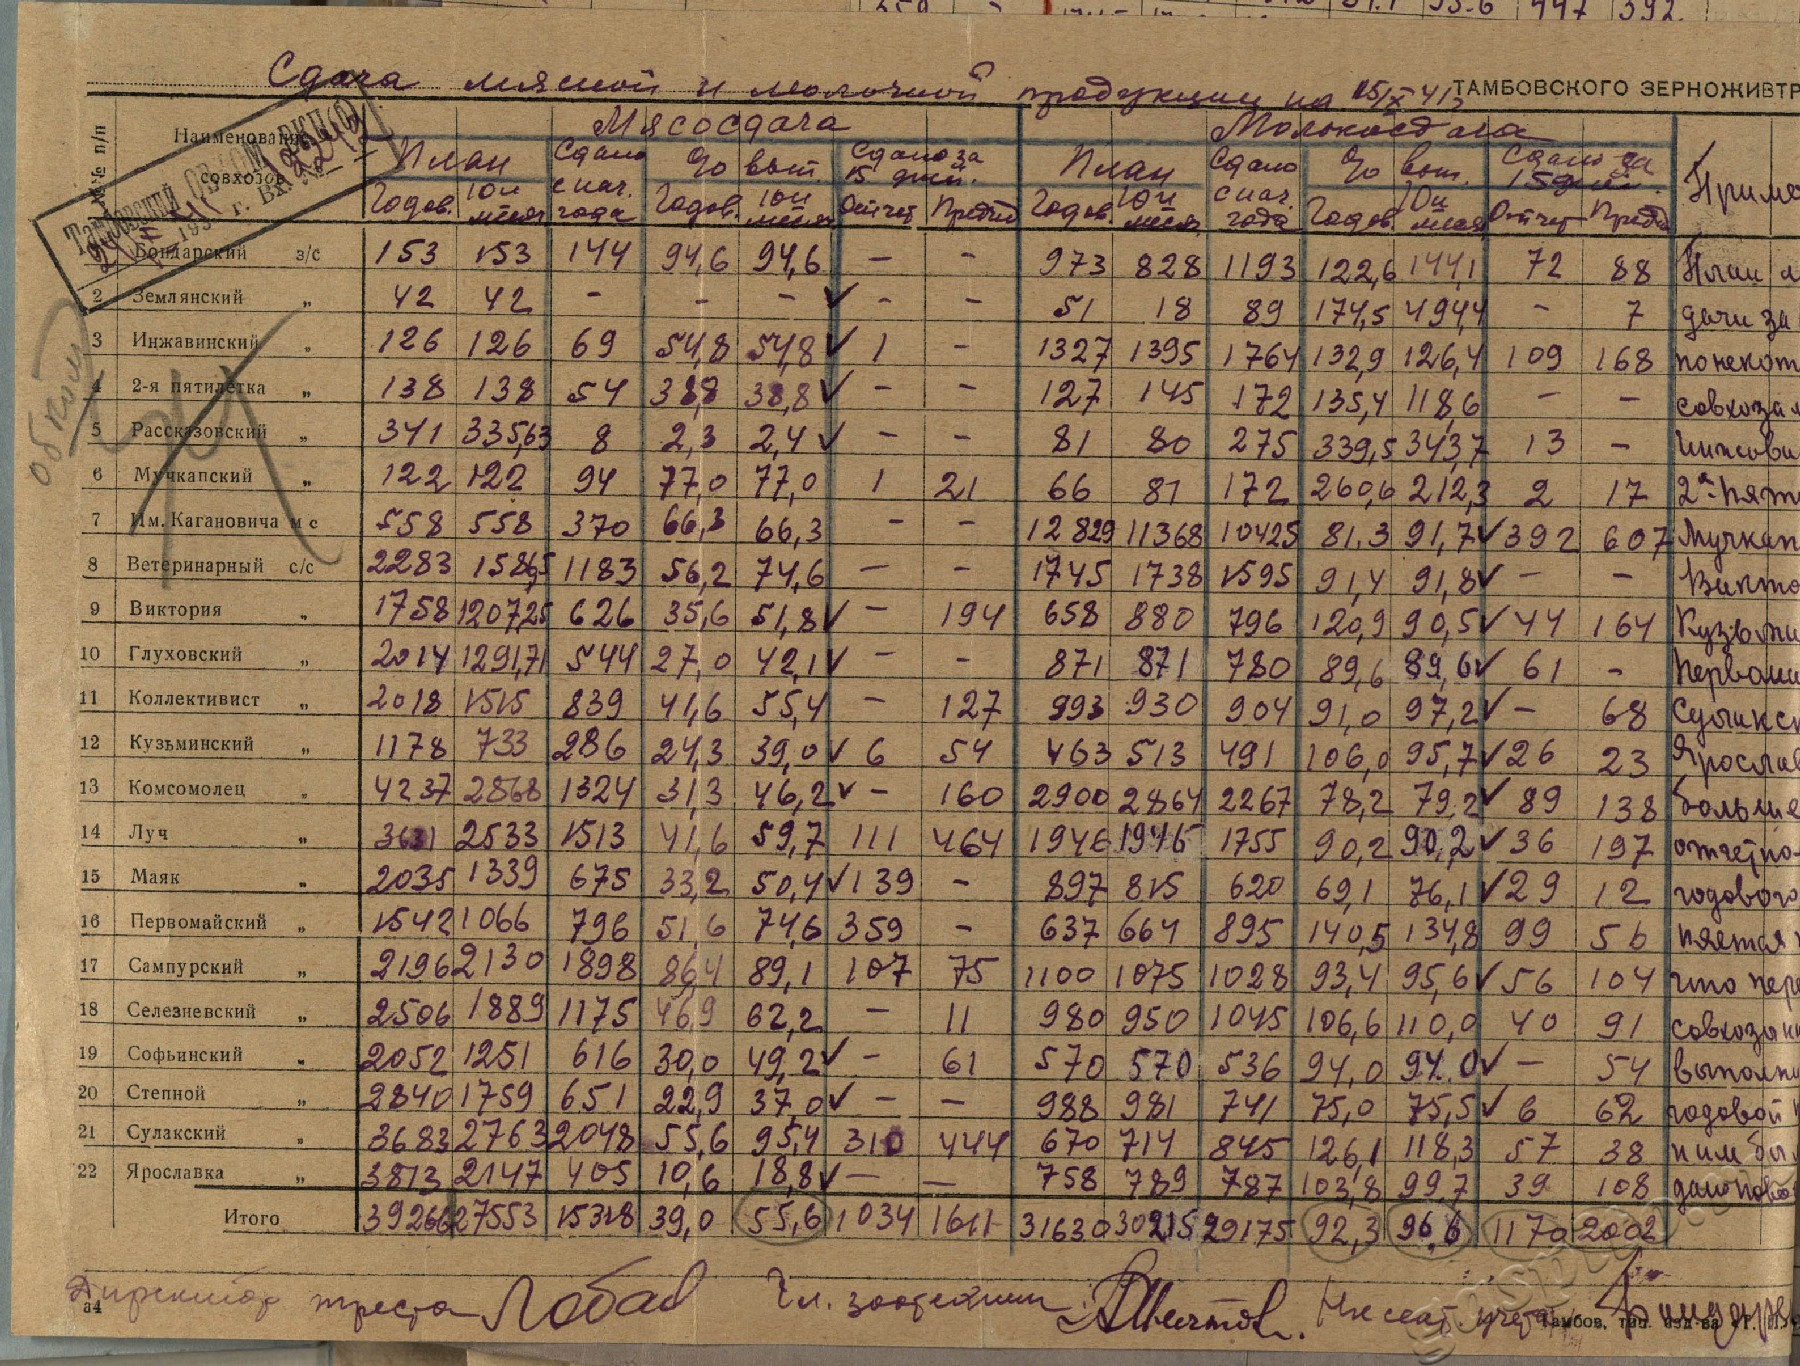 259 - 447 392
Сдача мясной и молочной продукции на 15/X 41 г ТАМБОВСКОГО ЗЕРНОЖИВТР
№№ п/п Наименование совхозов Мясосдача Молокосдача Приме
План Сдано с нач. года % вып. Сдано за 15 дней. План Сдано с нач. года % вып. Сдано за 15 дней
Годов. 10и месяц Годов. 10и месяц Отчет Предыд Годов. 10и месяц Годов. 10и месяц Отчет Предыд
Тамбовский ОБКОМ ВКП(б)
г. Вх. №
обком
Бондарский з/с 153 153 144 94,6 94,6 — - 973 828 1193 122,6 144,1 72 88 План
2 Землянский „ 42 42 - - - ✓ - - 51 18 89 174,5 494,4 - 7 дачи за
3 Инжавинский „ 126 126 69 54,8 54,8 ✓ 1 - 1327 1395 1764 132,9 126,4 109 168 по некот
4 2-я пятилетка „ 138 138 54 38,8 38,8 ✓ - - 127 145 172 135,4 118,6 - - совхозам
5 Рассказовский „ 341 335,63 8 2,3 2,4 ✓ - - 81 80 275 339,5 343,7 13 -
6 Мучкапский „ 122 122 94 77,0 77,0 1 21 66 81 172 260,6 212,3 2 17 2я пят
7 Им. Кагановича м с 558 558 370 66,3 66,3 - - 12829 11368 10425 81,3 91,7 ✓ 392 607 Мучкап
8 Ветеринарный с/с 2283 1586,5 1183 56,2 74,6 — - 1745 1738 1595 91,4 91,8 ✓ - - Викто
9 Виктория „ 1758 1207,25 626 35,6 51,8 ✓ - 194 658 880 796 120,9 90,5 ✓ 44 164 Кузьми
10 Глуховский „ 2014 1291,71 544 27,0 42,1 ✓ - - 871 871 780 89,6 89,6 ✓ 61 - Первомай
11 Коллективист „ 2018 1515 839 41,6 55,4 - 127 993 930 904 91,0 97,2 ✓ - 68
12 Кузьминский „ 1178 733 286 24,3 39,0 ✓ 6 54 463 513 491 106,0 95,7 ✓ 26 23 Ярослав
13 Комсомолец „ 4237 2868 1324 31,3 46,2 ✓ - 160 2900 2864 2267 78,2 79,2 ✓ 89 138 больше
14 Луч „ 3631 2533 1513 41,6 59,7 111 464 1946 1946 1755 90,2 90,2 ✓ 36 197
15 Маяк „ 2035 1339 675 33,2 50,4 ✓ 139 - 897 815 620 69,1 76,1 ✓ 29 12 годового
16 Первомайский „ 1542 1066 796 51,6 74,6 359 - 637 664 895 140,5 134,8 99 56
17 Сампурский „ 2196 2130 1898 86,4 89,1 107 75 1100 1075 1028 93,4 95,6 ✓ 56 104 что пере
18 Селезневский „ 2506 1889 1175 46,9 62,2 - 11 980 950 1045 106,6 110,0 40 91
19 Софьинский „ 2052 1251 616 30,0 49,2 ✓ - 61 570 570 536 94,0 94,0 ✓ - 54 выполни
20 Степной „ 2840 1759 651 22,9 37,0 ✓ - - 988 981 741 75,0 75,5 ✓ 6 62 годовой
21 Сулакский „ 3683 2763 2048 55,6 95,4 310 444 670 714 845 126,1 118,3 57 38 ним бы
22 Ярославка „ 3813 2147 405 10,6 18,8 ✓ — — 758 789 787 103,8 99,7 39 108
Итого 39266 27553 15318 39,0 55,6 1034 1611 31630 30215 29175 92,3 96,6 1170 2002
Директор треста Лобав Гл. зоотехник
а4 Тамбов, тип. изд-ва